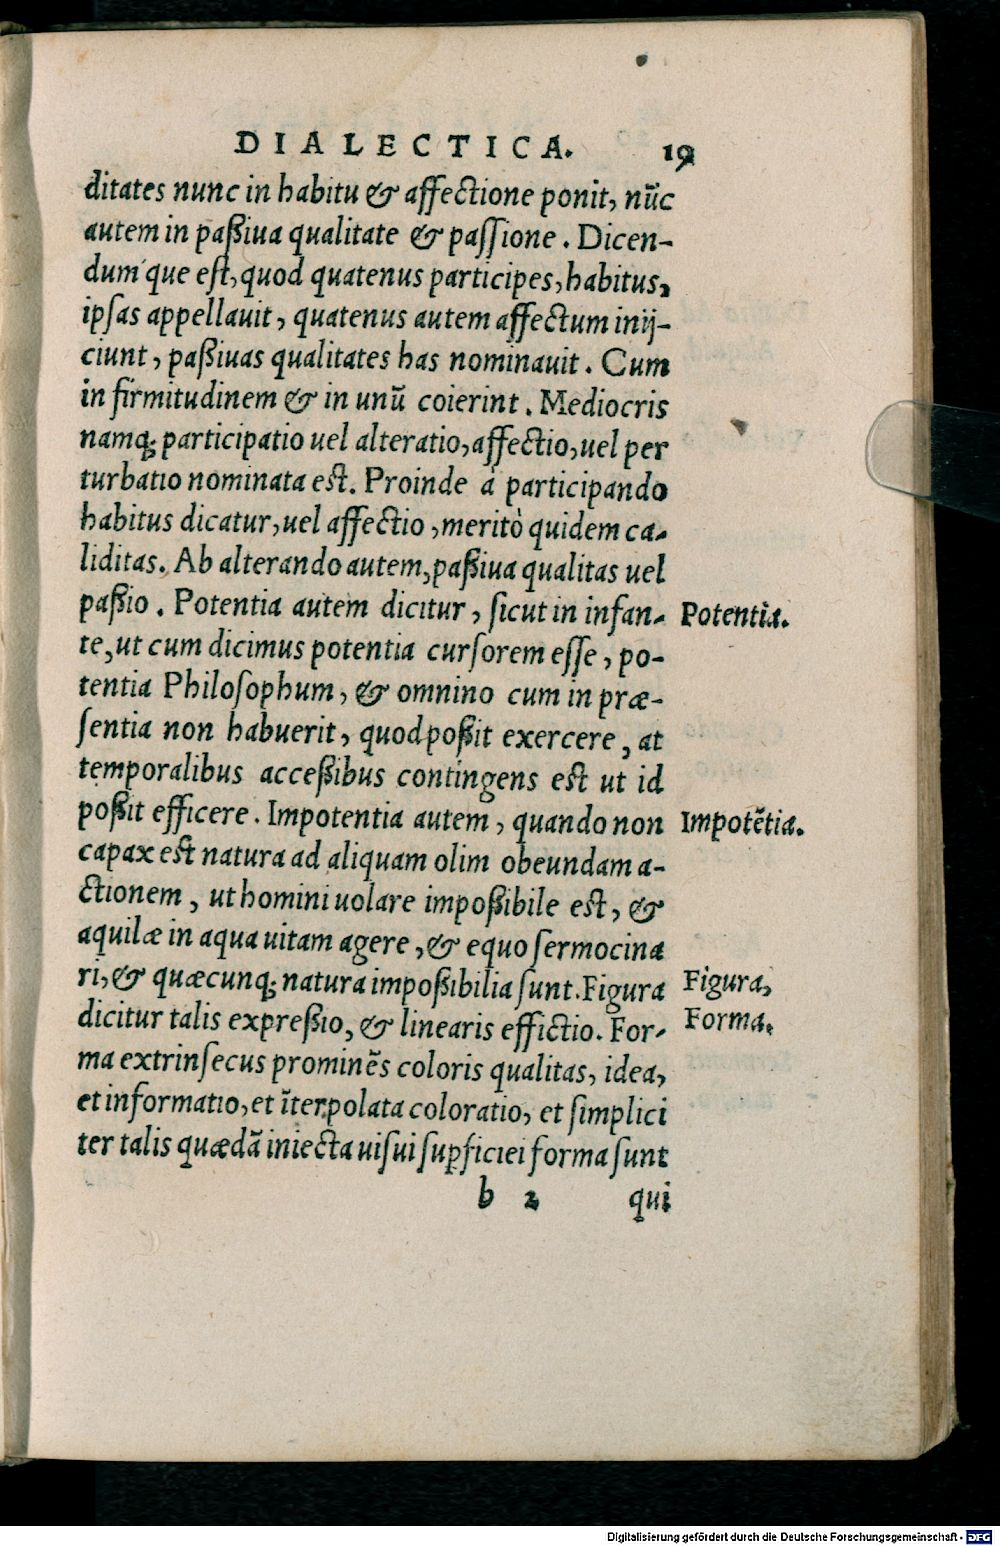 DIALECTICA. 19
ditates nunc in habitu & affectione ponit, nūc
autem in paßiua qualitate & paſſione. Dicen-
dum´que eſt, quod quatenus participes, habitus,
ipſas appellauit, quatenus autem affectum inij-
ciunt, paßiuas qualitates has nominauit. Cum
in firmitudinem & in unū coierint. Mediocris
namq; participatio uel alteratio, affectio, uel per
turbatio nominata eſt. Proinde à participando
habitus dicatur, uel affectio, meritò quidem ca-
liditas. Ab alterando autem, paßiua qualitas uel
paßio. Potentia autem dicitur, ſicut in infan- Potentia.
te, ut cum dicimus potentia curſorem eſſe, po-
tentia Philoſophum, & omnino cum in præ-
ſentia non habuerit, quod poßit exercere, at
temporalibus acceßibus contingens eſt ut id
poßit efficere. Impotentia autem, quando non Impotētia.
capax eſt natura ad aliquam olim obeundam a-
ctionem, ut homini uolare impoßibile eſt, &
aquilæ in aqua uitam agere, & equo ſermocina
ri, & quæcunq; natura impoßibilia ſunt. Figura Figura,
dicitur talis expreßio, & linearis effictio. For- Forma.
ma extrinſecus prominēs coloris qualitas, idea,
et informatio, et īterpolata coloratio, et ſimplici
ter talis quædā iniecta uiſui ſuꝑficiei forma ſunt
b 2 qui
Digitalisierung gefördert durch die Deutsche Forschungsgemeinschaft - DFG